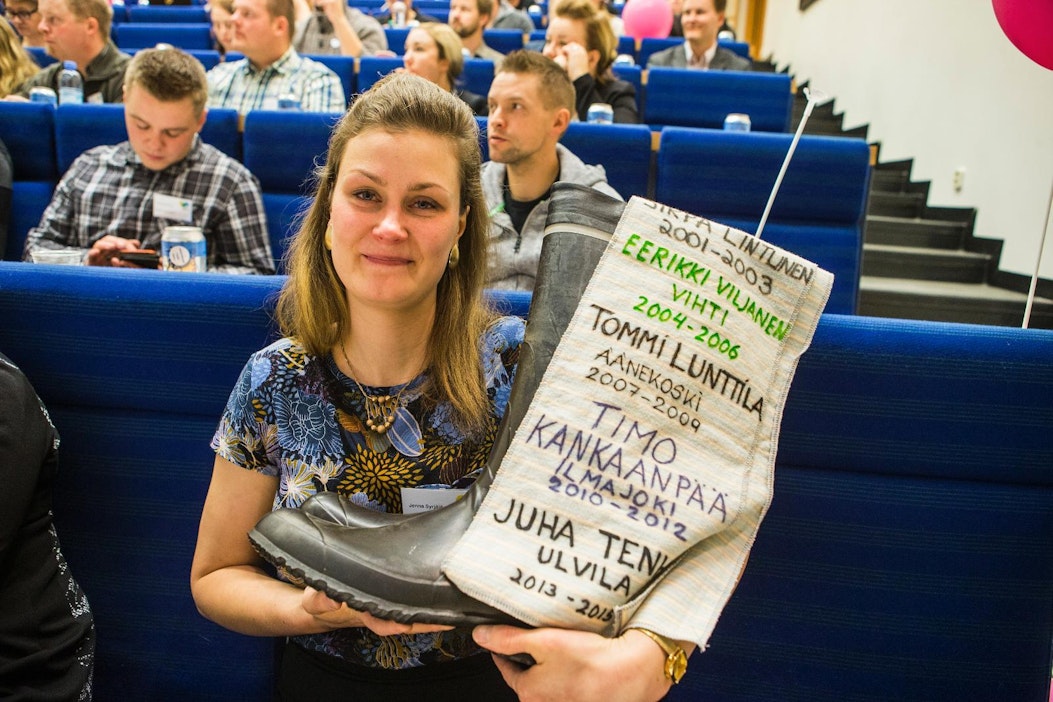 SIRPA LINTUNEN
2001-2003
EERIKKI VILJANEN
VIHTI
2004-2006
TOMMI LUNTTILA
ÄÄNEKOSKI
2007-2009
TIMO
KANKAANPÄÄ
ILMAJOKI
2010-2012
JUHA TENK
ULVILA
2013-2015
Jenna